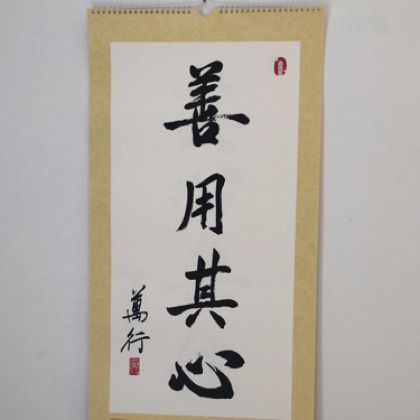 善用其心
萬行